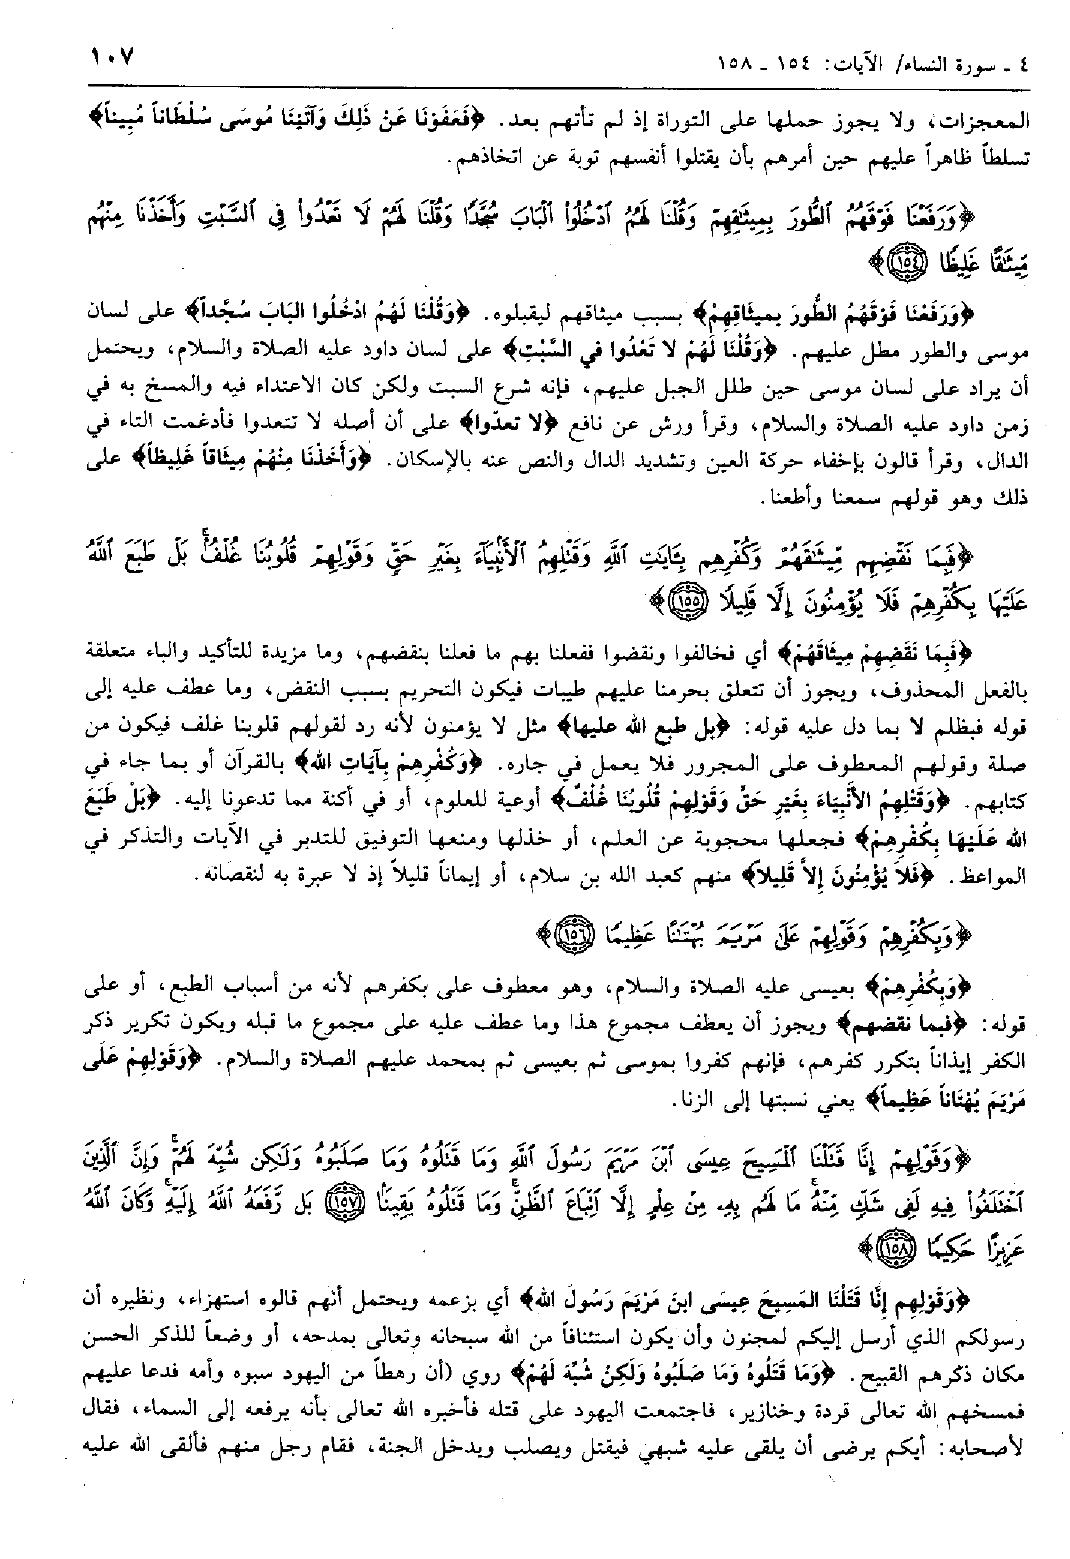 ٤ ـ سورة النساء/ الآيات: ١٥٤ ـ ١٥٨ ١٠٧
المعجزات، ولا يجوز حملها على التوراة إذ لم تأتهم بعد. ﴿فَعَفَوْنَا عَنْ ذَلِكَ وَآتَيْنَا مُوسَى سُلْطَاناً مُبِيناً﴾
تسلطاً ظاهراً عليهم حين أمرهم بأن يقتلوا أنفسهم توبة عن اتخاذهم.
﴿وَرَفَعْنَا فَوْقَهُمُ ٱلطُّورَ بِمِيثَٰقِهِمْ وَقُلْنَا لَهُمُ ٱدْخُلُوا۟ ٱلْبَابَ سُجَّدًا وَقُلْنَا لَهُمْ لَا تَعْدُوا۟ فِى ٱلسَّبْتِ وَأَخَذْنَا مِنْهُم
مِّيثَٰقًا غَلِيظًا ١٥٤﴾
﴿وَرَفَعْنَا فَوْقَهُمُ الطُّورَ بِمِيثَاقِهِمْ﴾ بسبب ميثاقهم ليقبلوه. ﴿وَقُلْنَا لَهُمُ ادْخُلُوا البَابَ سُجَّداً﴾ على لسان
موسى والطور مطل عليهم. ﴿وَقُلْنَا لَهُمْ لا تَعْدُوا في السَّبْتِ﴾ على لسان داود عليه الصلاة والسلام، ويحتمل
أن يراد على لسان موسى حين ظلل الجبل عليهم، فإنه شرع السبت ولكن كان الاعتداء فيه والمسخ به في
زمن داود عليه الصلاة والسلام، وقرأ ورش عن نافع ﴿لا تعدّوا﴾ على أن أصله لا تتعدوا فأدغمت التاء في
الدال، وقرأ قالون بإخفاء حركة العين وتشديد الدال والنص عنه بالإسكان. ﴿وَأَخَذْنَا مِنْهُمْ مِيثَاقاً غَلِيظاً﴾ على
ذلك وهو قولهم سمعنا وأطعنا.
﴿فَبِمَا نَقْضِهِم مِّيثَٰقَهُمْ وَكُفْرِهِم بِـَٔايَٰتِ ٱللَّهِ وَقَتْلِهِمُ ٱلْأَنۢبِيَآءَ بِغَيْرِ حَقٍّ وَقَوْلِهِمْ قُلُوبُنَا غُلْفٌۢ بَلْ طَبَعَ ٱللَّهُ
عَلَيْهَا بِكُفْرِهِمْ فَلَا يُؤْمِنُونَ إِلَّا قَلِيلًا ١٥٥﴾
﴿فَبِمَا نَقْضِهِمْ مِيثَاقَهُمْ﴾ أي فخالفوا ونقضوا ففعلنا بهم ما فعلنا بنقضهم، وما مزيدة للتأكيد والباء متعلقة
بالفعل المحذوف، ويجوز أن تتعلق بحرمنا عليهم طيبات فيكون التحريم بسبب النقض، وما عطف عليه إلى
قوله فبظلم لا بما دل عليه قوله: ﴿بل طبع الله عليها﴾ مثل لا يؤمنون لأنه رد لقولهم قلوبنا غلف فيكون من
صلة وقولهم المعطوف على المجرور فلا يعمل في جاره. ﴿وَكُفْرِهِمْ بِآيَاتِ الله﴾ بالقرآن أو بما جاء في
كتابهم. ﴿وَقَتْلِهِمُ الأَنْبِيَاءَ بِغَيْرِ حَقٍّ وَقَوْلِهِمْ قُلُوبُنَا غُلْفٌ﴾ أوعية للعلوم، أو في أكنة مما تدعونا إليه. ﴿بَلْ طَبَعَ
الله عَلَيْهَا بِكُفْرِهِمْ﴾ فجعلها محجوبة عن العلم، أو خذلها ومنعها التوفيق للتدبر في الآيات والتذكر في
المواعظ. ﴿فَلاَ يُؤْمِنُونَ إِلاَّ قَلِيلاً﴾ منهم كعبد الله بن سلام، أو إيماناً قليلاً إذ لا عبرة به لنقصانه.
﴿وَبِكُفْرِهِمْ وَقَوْلِهِمْ عَلَىٰ مَرْيَمَ بُهْتَٰنًا عَظِيمًا ١٥٦﴾
﴿وَبِكُفْرِهِمْ﴾ بعيسى عليه الصلاة والسلام، وهو معطوف على بكفرهم لأنه من أسباب الطبع، أو على
قوله: ﴿فبما نقضهم﴾ ويجوز أن يعطف مجموع هذا وما عطف عليه على مجموع ما قبله ويكون تكرير ذكر
الكفر إيذاناً بتكرر كفرهم، فإنهم كفروا بموسى ثم بعيسى ثم بمحمد عليهم الصلاة والسلام. ﴿وَقَوْلِهِمْ عَلَى
مَرْيَمَ بُهْتَاناً عَظِيماً﴾ يعني نسبتها إلى الزنا.
﴿وَقَوْلِهِمْ إِنَّا قَتَلْنَا ٱلْمَسِيحَ عِيسَى ٱبْنَ مَرْيَمَ رَسُولَ ٱللَّهِ وَمَا قَتَلُوهُ وَمَا صَلَبُوهُ وَلَٰكِن شُبِّهَ لَهُمْ وَإِنَّ ٱلَّذِينَ
ٱخْتَلَفُوا۟ فِيهِ لَفِى شَكٍّ مِّنْهُ مَا لَهُم بِهِۦ مِنْ عِلْمٍ إِلَّا ٱتِّبَاعَ ٱلظَّنِّ وَمَا قَتَلُوهُ يَقِينًۢا ١٥٧ بَل رَّفَعَهُ ٱللَّهُ إِلَيْهِ وَكَانَ ٱللَّهُ
عَزِيزًا حَكِيمًا ١٥٨﴾
﴿وَقَوْلِهِم إِنَّا قَتَلْنَا المَسِيحَ عِيسَى ابنَ مَرْيَمَ رَسُولَ الله﴾ أي بزعمه ويحتمل أنهم قالوه استهزاء، ونظيره أن
رسولكم الذي أرسل إليكم لمجنون وأن يكون استئنافاً من الله سبحانه وتعالى بمدحه، أو وضعاً للذكر الحسن
مكان ذكرهم القبيح. ﴿وَمَا قَتَلُوهُ وَمَا صَلَبُوهُ وَلَكِنْ شُبِّهَ لَهُمْ﴾ روي (أن رهطاً من اليهود سبوه وأمه فدعا عليهم
فمسخهم الله تعالى قردة وخنازير، فاجتمعت اليهود على قتله فأخبره الله تعالى بأنه يرفعه إلى السماء، فقال
لأصحابه: أيكم يرضى أن يلقى عليه شبهي فيقتل ويصلب ويدخل الجنة، فقام رجل منهم فألقى الله عليه